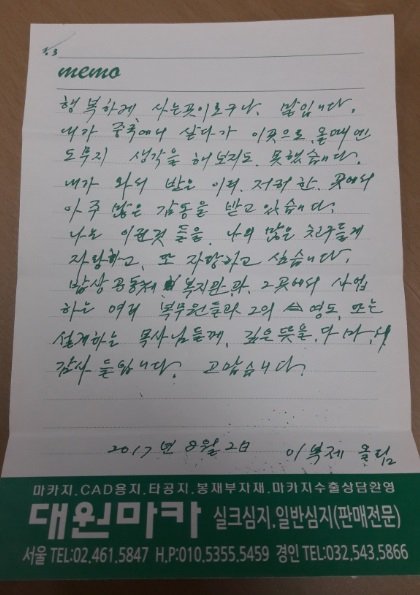 3
memo
행복하게, 사는곳이로구나, 말입니다.
내가 중국에서 살다가 이곳으로, 올때엔
도무지 생각을 해보지도, 못했습니다.
내가 와서 받은 이런, 저러한, 곳에서
아주 많은 감동을 받고있습니다.
나는 이런것 들을, 나의 많은 친구들게
자랑하고, 또 자랑하고 싶습니다.
밥상공동체, 복지관과, 그곳에서 사업
하는 여러 복무원들과 그의 영도, 또는
설계하는 목사님들께, 깊은뜻을, 다
감사 들입니다. 고맙습니다.
2017년 8월 2일 이복제 올림
마카지.CAD용지.타공지.봉재부자재.마카지수출상담환영
대원마카 실크심지,일반심지(판매전문)
서울 TEL:02.461.5847 H,P:010.5355.5459 경인 TEL:032,543.5866